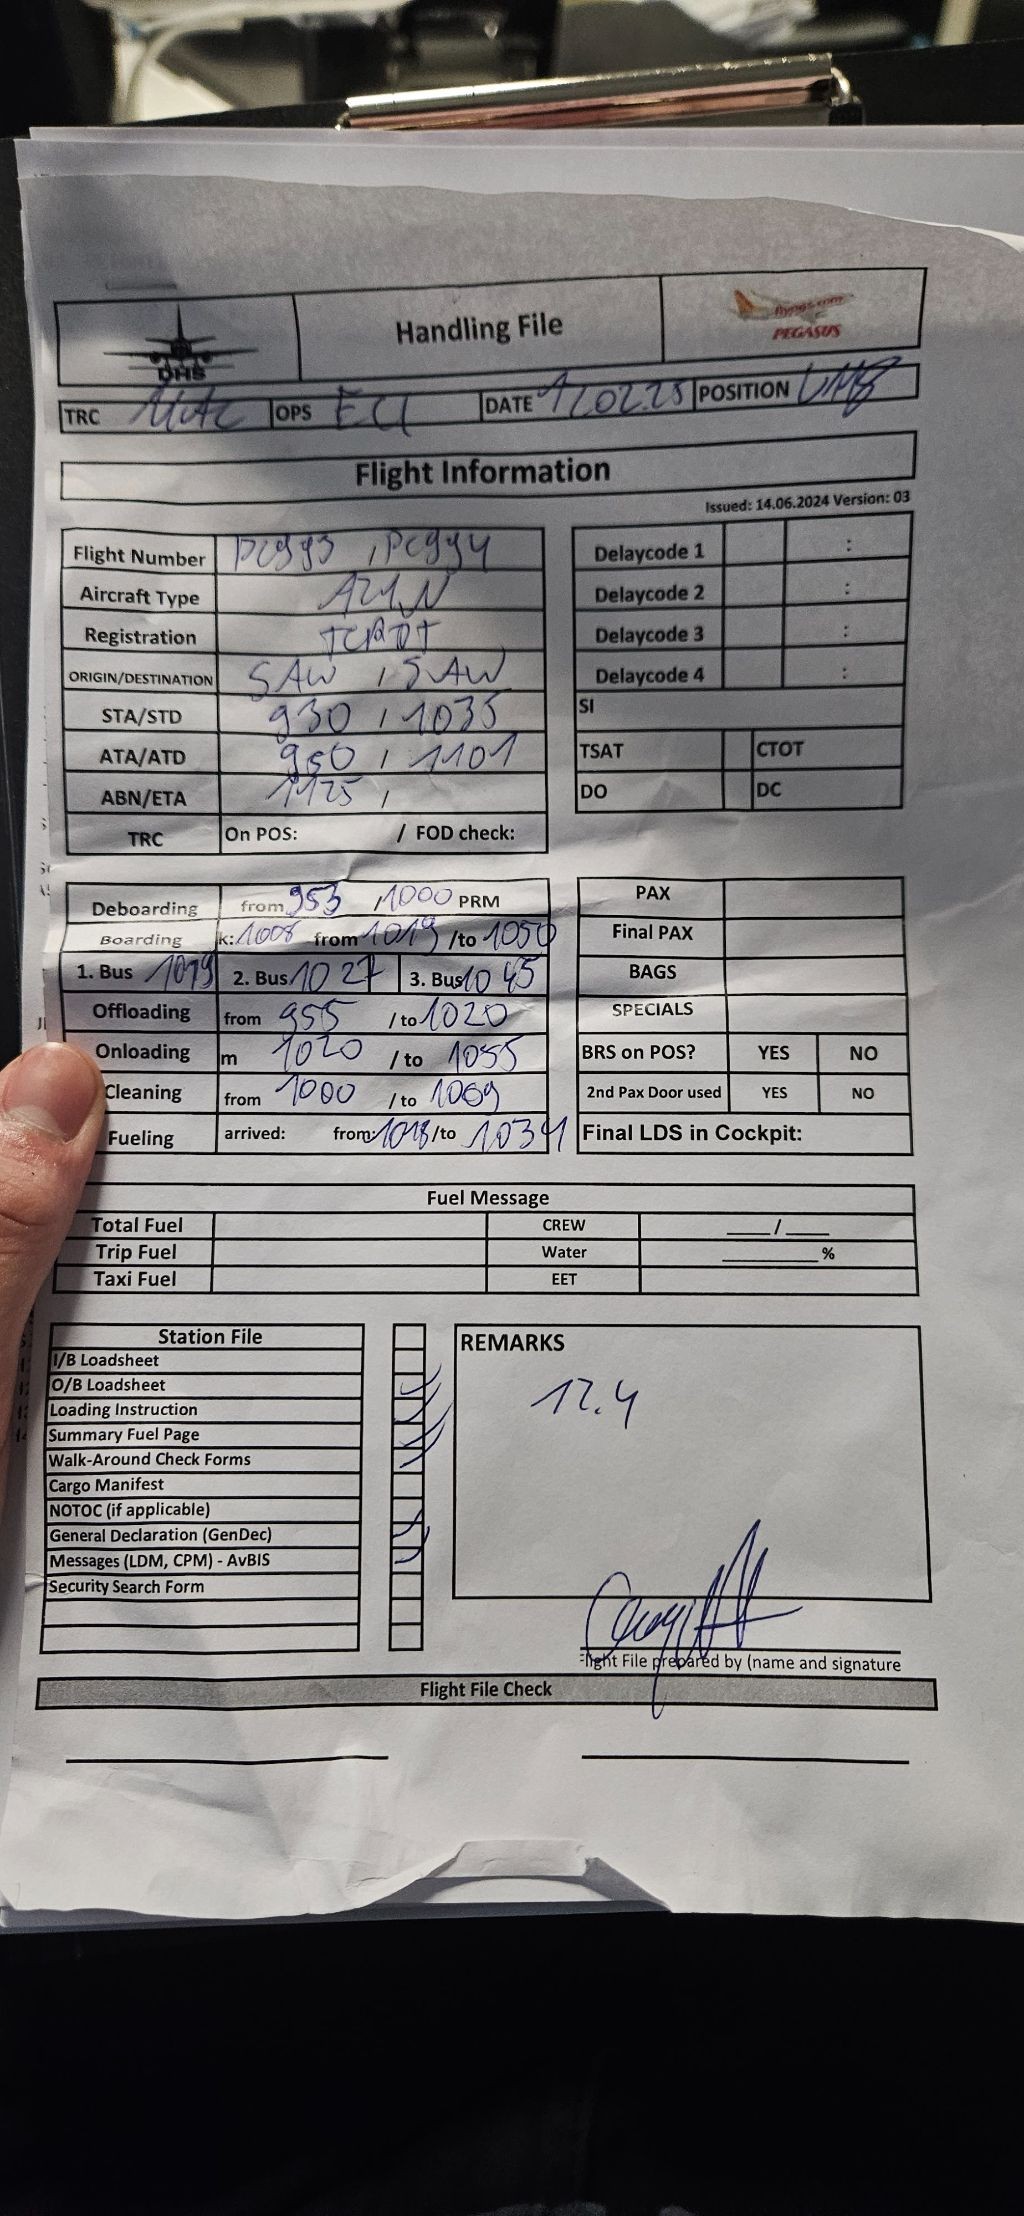 DHS
Handling File
flypgs.com
PEGASUS
TRC OPS ECU DATE 1/02.25 POSITION
Flight Information
Issued: 14.06.2024 Version: 03
Flight Number pc993 , pc994
Aircraft Type A21N
Registration TCRDT
ORIGIN/DESTINATION SAW / SAW
STA/STD 930 / 1035
ATA/ATD 950 / 1101
ABN/ETA 1125 /
TRC On POS: / FOD check:
Delaycode 1 :
Delaycode 2 :
Delaycode 3 :
Delaycode 4 :
SI
TSAT CTOT
DO DC
Deboarding from 953 / 1000 PRM
Boarding k: 1008 from 1019 /to 1050
1. Bus 1019 2. Bus 1027 3. Bus 1045
Offloading from 955 / to 1020
Onloading m 1020 / to 1055
Cleaning from 1000 / to 1009
Fueling arrived: from: 1018 /to 1034
PAX
Final PAX
BAGS
SPECIALS
BRS on POS? YES NO
2nd Pax Door used YES NO
Final LDS in Cockpit:
Fuel Message
Total Fuel CREW ____/____
Trip Fuel Water ________%
Taxi Fuel EET
Station File
I/B Loadsheet
O/B Loadsheet
Loading Instruction
Summary Fuel Page
Walk-Around Check Forms
Cargo Manifest
NOTOC (if applicable)
General Declaration (GenDec)
Messages (LDM, CPM) - AvBIS
Security Search Form
REMARKS
12.4
light File prepared by (name and signature
Flight File Check